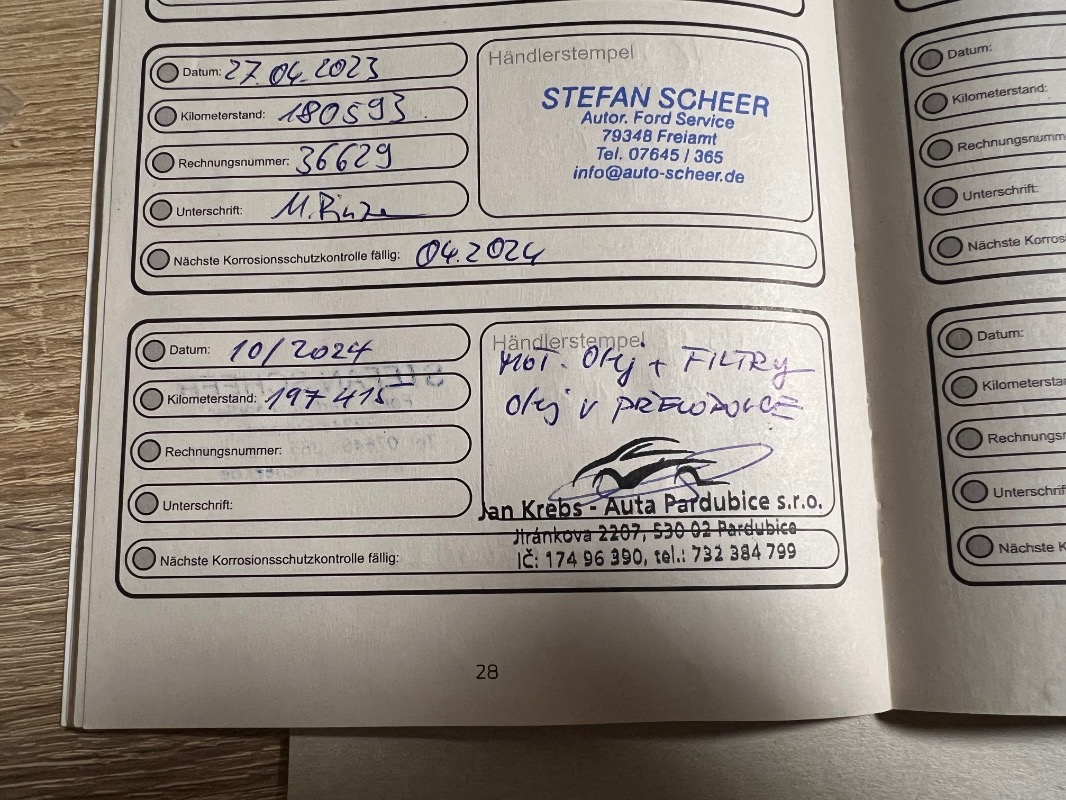 Datum: 27.04.2023
Kilometerstand: 180593
Rechnungsnummer: 36629
Unterschrift:
Nächste Korrosionsschutzkontrolle fällig: 04.2024
Händlerstempel
STEFAN SCHEER
Autor. Ford Service
79348 Freiamt
Tel. 07645 / 365
info@auto-scheer.de
Datum: 10/2024
Kilometerstand: 197415
Rechnungsnummer:
Unterschrift:
Nächste Korrosionsschutzkontrolle fällig:
Händlerstempel
MOT. OLEJ + FILTRY
OLEJ V PŘEVODOVCE
Jan Krebs - Auta Pardubice s.r.o.
Jiránkova 2207, 530 02 Pardubice
IČ: 174 96 390, tel.: 732 384 799
28
Datum:
Kilometerstand:
Rechnungsnumm
Unterschrift:
Nächste Korros
Datum:
Kilometersta
Rechnungsr
Unterschrif
Nächste K